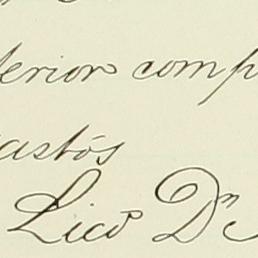 terior comp
astós
Licdo Dn